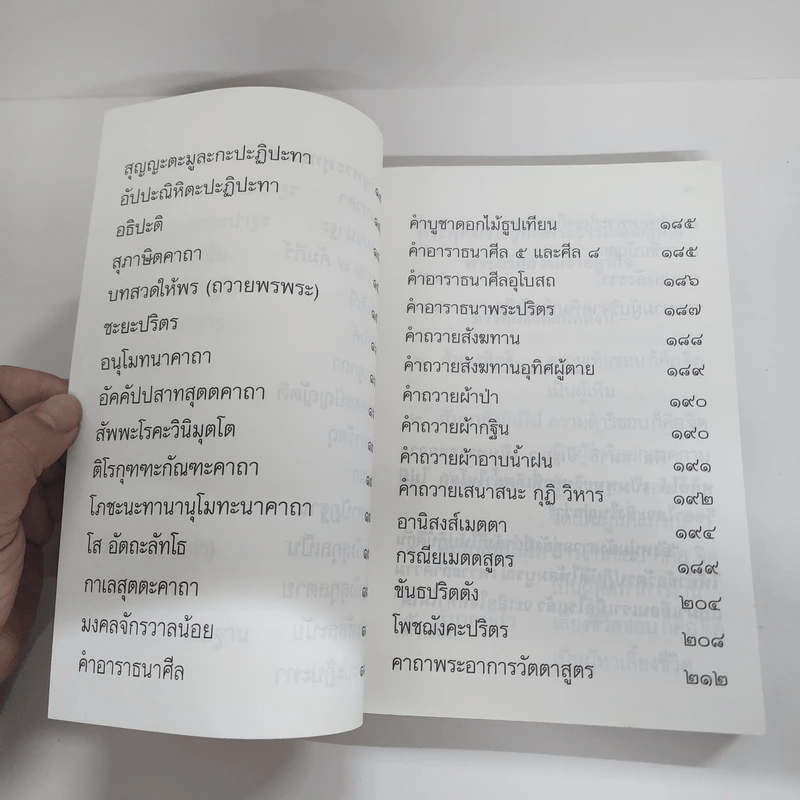 สุญญะตะมูละกะปะฏิปะทา
อัปปะณิหิตะปะฏิปะทา
อธิปะติ
สุภาษิตคาถา
บทสวดให้พร (ถวายพรพระ)
ชะยะปริตร
อนุโมทนาคาถา
อัคคัปปสาทสุตตคาถา
สัพพะโรคะวินิมุตโต
ติโรกุฑฑะกัณฑะคาถา
โภชะนะทานานุโมทะนาคาถา
โส อัตถะลัทโธ
กาเลสุตตะคาถา
มงคลจักรวาลน้อย
คำอาราธนาศีล
คำบูชาดอกไม้ธูปเทียน ๑๘๕
คำอาราธนาศีล ๕ และศีล ๘ ๑๘๕
คำอาราธนาศีลอุโบสถ ๑๘๖
คำอาราธนาพระปริตร ๑๘๗
คำถวายสังฆทาน ๑๘๘
คำถวายสังฆทานอุทิศผู้ตาย ๑๘๙
คำถวายผ้าป่า ๑๙๐
คำถวายผ้ากฐิน ๑๙๐
คำถวายผ้าอาบน้ำฝน ๑๙๑
คำถวายเสนาสนะ กุฏิ วิหาร ๑๙๒
อานิสงส์เมตตา ๑๙๔
กรณียเมตตสูตร ๑๙๙
ขันธปริตตัง ๒๐๔
โพชฌังคะปริตร ๒๐๘
คาถาพระอาการวัตตาสูตร ๒๑๒